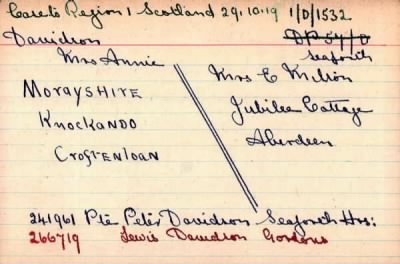 Careto Region 1 Scotland 29.10.19 1/D/1532
Davidson DP 54/0
Seaforth
Mrs Annie Mrs E Milton
MORAYSHIRE Jubilee Cottage
KNOCKANDO Aberdeen
CROFTENLOAN
241961 Pte Peter Davidson Seaforth Hrs:
266719 Lewis Davidson Gordons